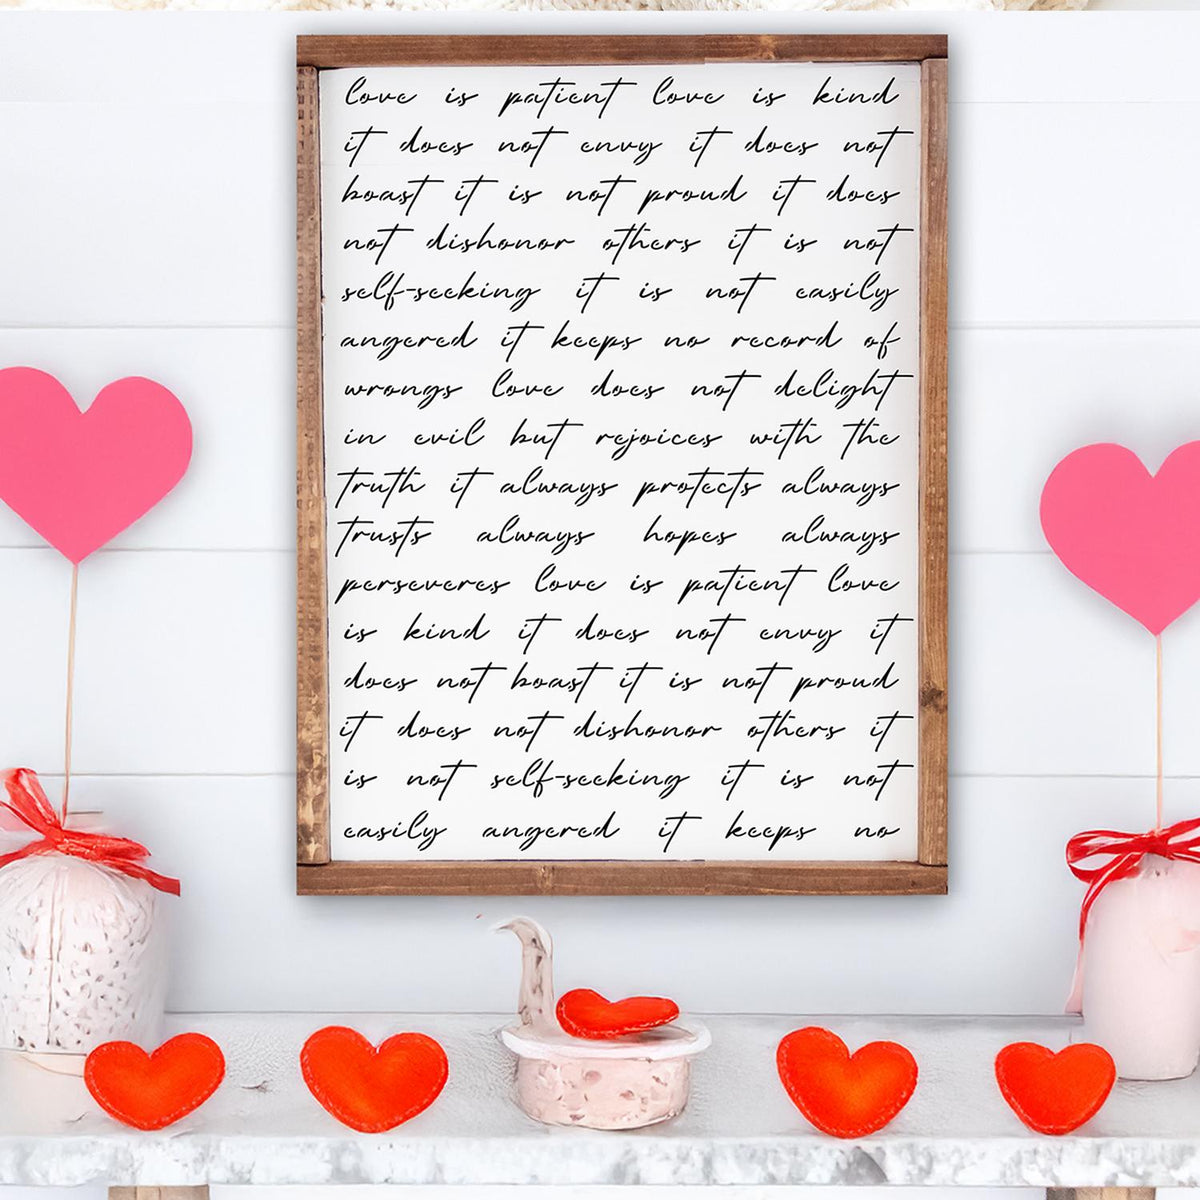 love is patient love is kind
it does not envy it does not
boast it is not proud it does
not dishonor others it is not
self-seeking it is not easily
angered it keeps no record of
wrongs love does not delight
in evil but rejoices with the
truth it always protects always
trusts always hopes always
perseveres love is patient love
is kind it does not envy it
does not boast it is not proud
it does not dishonor others it
is not self-seeking it is not
easily angered it keeps no